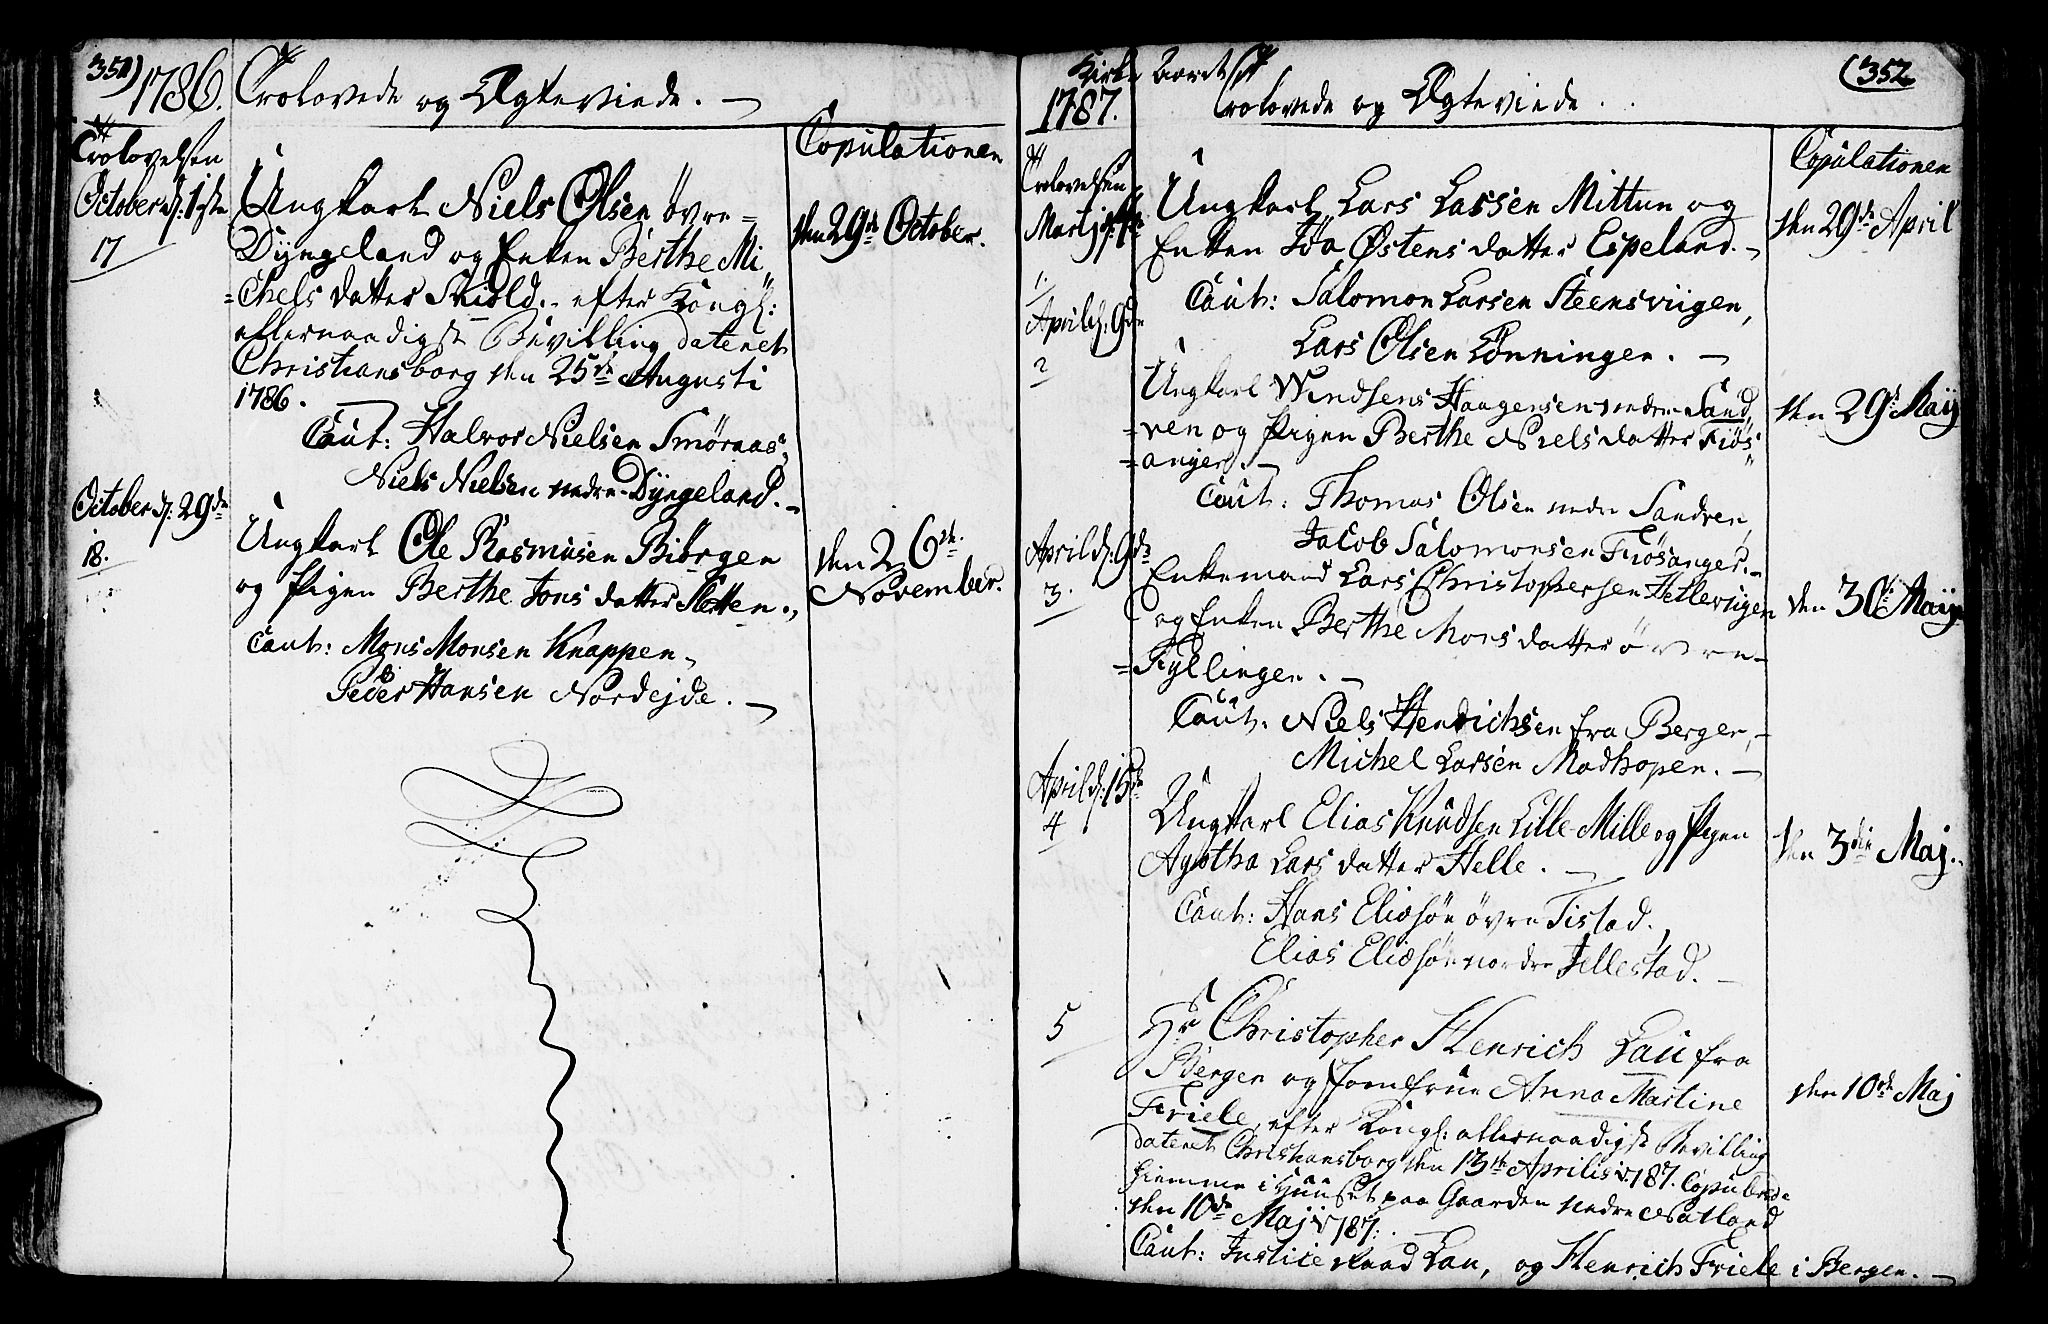 351) 1786. Trolovede og Ægteviede. —
Trolovelsen
Copulationen
October d: 1ste
17
Ungkarl Niels Olsen øvre=
Dyngeland og Enken Berthe Mi,,
=chels datter Skiold. efter Kongl:
allernaadigst Bevilling dateret
Christiansborg den 25de Augusti
1786. —
den 29de October.
Caut: Halvor Nielsen Smøraas,
Niels Nielsen nedre Dyngeland. —
October d: 29de
18.
Ungkarl Ole Rasmusen Biørgen
og Pigen Berthe Jons datter Sletten.,
den 26de
November.
Caut: Mons Monsen Knappen,
Peder Hansen Nordejde. —
Kirke Aaret
(352
1787. Trolovede og Ægteviede.
Trolovelsen
Copulationen
Martj d:
1.
Ungkarl Lars Larsen Mittun og
Enken Østens datter Espeland. —
den 29de April
Caut: Salomon Larsen Steensviigen,
Lars Olsen Lønningen. —
April d: 9de
2
Ungkarl Haagensen nedre Sand,
=ven og Pigen Berthe Niels datter Fiøs
=anger. —
den 29de Maij
Caut: Thomas Olsen nedre Sandven,
Jacob Salomonsen Fiøsanger. —
April d: 9de
3.
Enkemand Lars Christophersen Hellevigen
og Enken Berthe Mons datter øvre
=Fyllingen. —
den 30te Maij
Caut: Niels Henrichsen fra Bergen, —
Michel Larsen Madhopen. —
April d: 15de
4
Ungkarl Elias Knudsen Lille Milde og Pigen
Agotha Lars datter Helle. —
den 3die Maj.
Caut: Hans Eliæsøn øvre Tistad.,
Elias Eliæsøn nordre Jllestad. —
5
Hr Christopher Henrich Lau fra
Bergen og Jomfrue Anna Martine
Friele, efter Kongl: allernaadigst Bevilling
dateret Christiansborg den 13de Aprilis 1787. Copulerede
hiemme i Huuset paa Gaarden nedre Natland
den 10de Maj 1787.
den 10de Maj
Caut: Justice Raad Lau, og Henrich Friele i Bergen. —